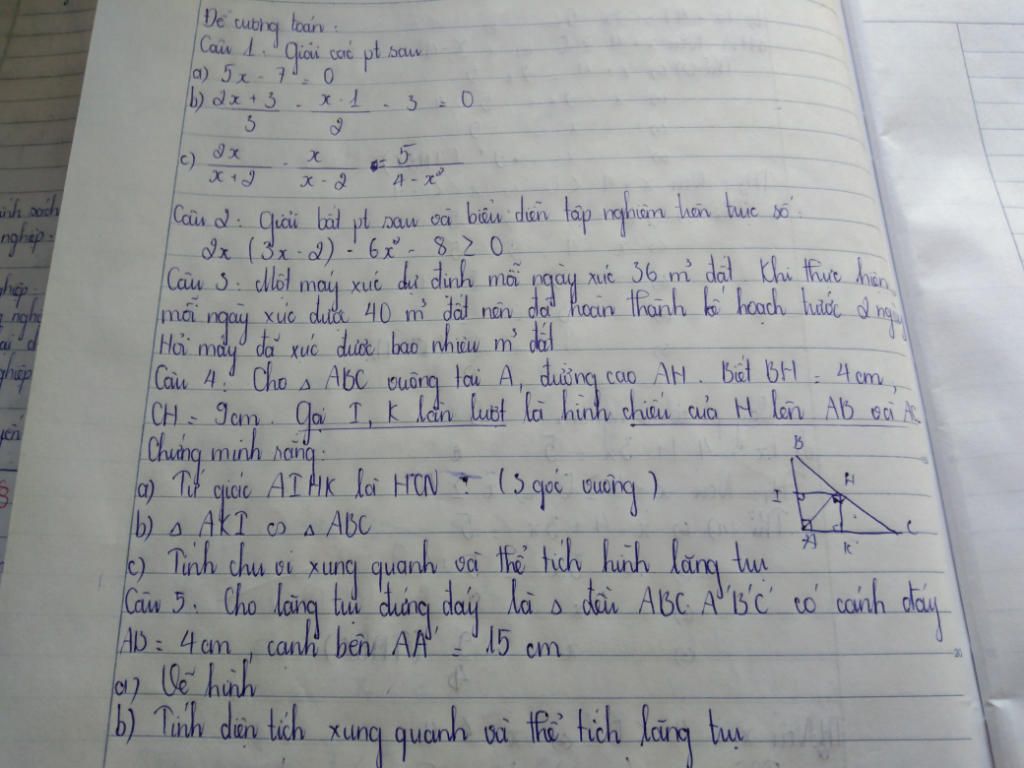 Đề cương toán:
Câu 1: Giải các pt sau
a) 5x - 7 = 0
b) 2x + 3 / 3 - x - 1 / 2 - 3 = 0
c) 2x / x + 2 - x / x - 2 = 5 / 4 - x²
Câu 2: Giải bất pt sau và biểu diễn tập nghiệm trên trục số:
2x (3x - 2) - 6x² - 8 ≥ 0
Câu 3: Một máy xúc dự định mỗi ngày xúc 36 m³ đất. Khi thực hiện
mỗi ngày xúc được 40 m³ đất nên đã hoàn thành kế hoạch trước 2 ngày
Hỏi máy đã xúc được bao nhiêu m³ đất
Câu 4: Cho △ ABC vuông tại A, đường cao AH. Biết BH = 4cm,
CH = 9cm. Gọi I, K lần lượt là hình chiếu của H lên AB và AC
Chứng minh rằng:
a) Tứ giác AIHK là HCN (3 góc vuông)
b) △ AKI ∽ △ ABC
B
H
I
A
K
C
c) Tính chu vi xung quanh và thể tích hình lăng trụ
Câu 5: Cho lăng trụ đứng đáy là △ đều ABC A'B'C' có cánh đáy
AB = 4cm, cạnh bên AA' = 15 cm
a) Vẽ hình
b) Tính diện tích xung quanh và thể tích lăng trụ